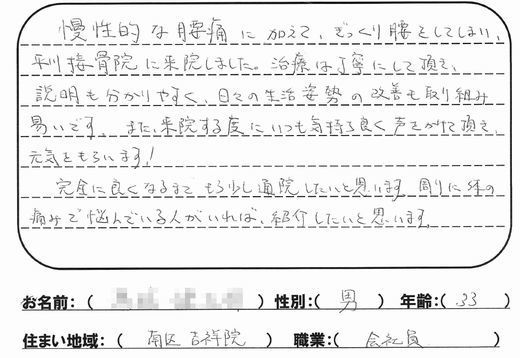 慢性的な腰痛に加えて、ぎっくり腰をしてしまい、
接骨院に来院しました。治療は丁寧にして頂き、
説明も分かりやすく、日々の生活姿勢の改善も取り組み
易いです。また、来院する度にいつも気持ち良く声をかけて頂き
元気をもらいます!
完全に良くなるまでもう少し通院したいと思います。周りに体の
痛みで悩んでいる人がいれば、紹介したいと思います。
お名前:( ) 性別:( 男 ) 年齢:( 33 )
住まい地域:( 南区 吉祥院 ) 職業:( 会社員 )